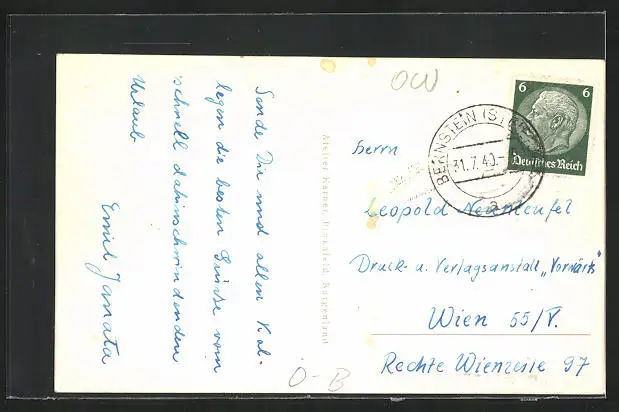 Sende Dir und allen Kol-
legen die besten Grüsse vom
schnell dahinschwindenden
Urlaub
Emil Janata
Atelier Karner, Pinkafeld, Burgenland
OW
6 6
Deutsches Reich
BERNSTEIN
31.7.40.-
a
Herrn
Leopold Neunteufel
Druck- u. Verlagsanstalt „Vorwärts"
Wien 55/V.
Rechte Wienzeile 97
O-B